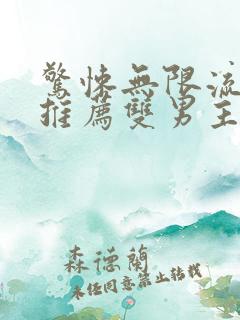 驚悚無限流
推薦雙男主
森德蘭
未經同意禁止轉載